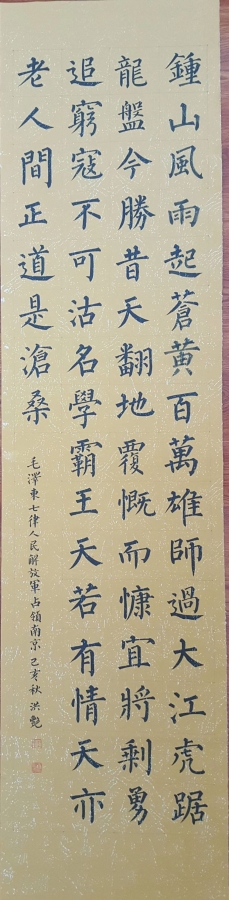 鍾山風雨起蒼黄百萬雄師過大江虎踞
龍盤今勝昔天翻地覆慨而慷宜將剩勇
追窮寇不可沽名學霸王天若有情天亦
老人間正道是滄桑
毛澤東七律人民解放軍占領南京 己亥秋 洪艷